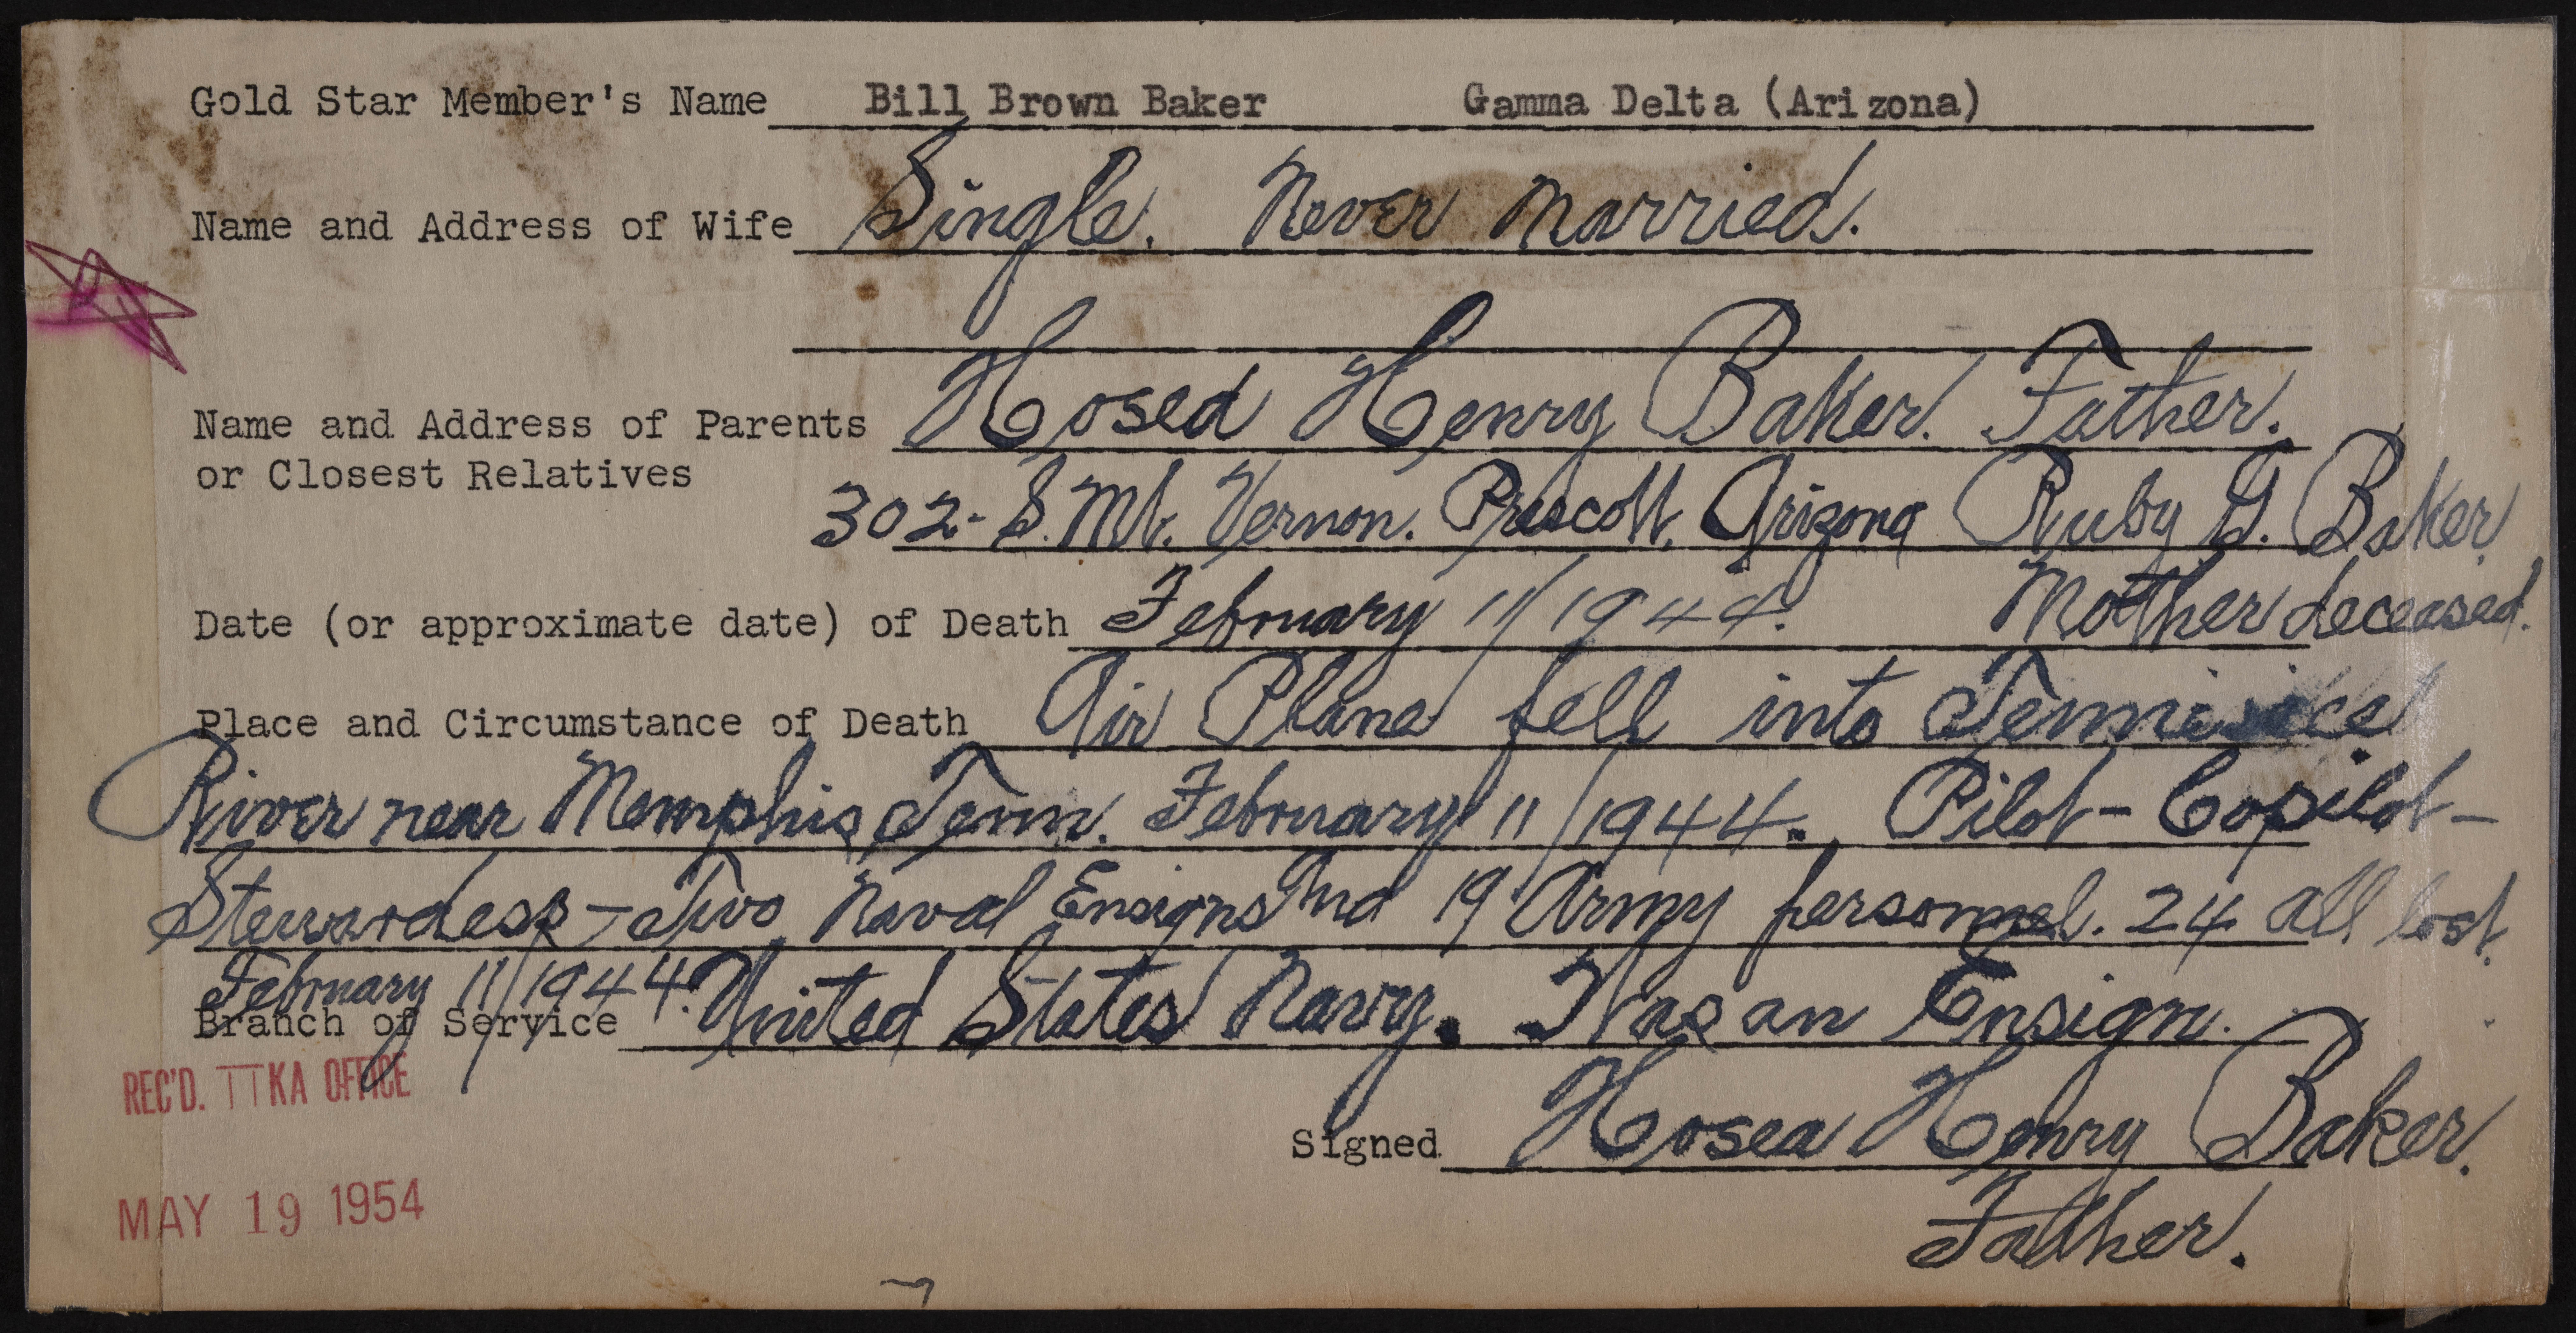 Gold Star Member's Name Bill Brown Baker Gamma Delta (Arizona)
Name and Address of Wife Single. Never married.
Name and Address of Parents Hosea Henry Baker. Father.
or Closest Relatives
302- S. Mt. Vernon. Prescott, Arizona Ruby G. Baker
Date (or approximate date) of Death February 11/1944. Mother deceased.
Place and Circumstance of Death Air Plane fell into
River near Memphis, Tenn. February 11/1944. Pilot - Copilot -
Stewardess - Two Naval Ensigns And 19 Army personnel. 24 all lost.
February 11/1944.
Branch of Service United States Navy. Was an Ensign.
REC'D. TTKA OFFICE
Signed Hosea Henry Baker.
MAY 19 1954
Father.